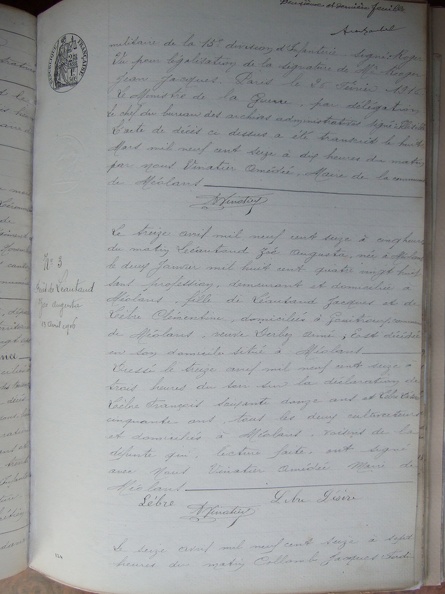 Deuxième et dernier feuillet
militaire de la 15e division d'Infanterie signé Moyen
Vu pour légalisation de la signature de Mr Moyen
Jean Jacques. Paris le 25 Février 1916
Le Ministre de la Guerre, par délégation
le chef du bureau des archives administratives signé
L'acte de décès ci dessus a été transcrit le huit
Mars mil neuf cent seize à dix heures du matin
par nous Vinatier Amédée, Maire de la commune
de Méolans
Vinatier
No 3
Décès de Léautaud
augusta
13 avril 1916
Le treize avril mil neuf cent seize à onze heures
du matin Léautaud augusta, née à Méolans
le deux Janvier mil huit cent quatre vingt huit
sans profession, demeurant et domiciliée à
Méolans, fille de Léautaud Jacques et de
Lèbre Clémentine domiciliés à
de Méolans, veuve aimé, Est décédée
en son domicile situé à Méolans
Dressé le treize avril mil neuf cent seize à
trois heures du soir sur la déclaration de
Lèbre François soixante douze ans et Lèbre Désiré
cinquante ans, tous les deux cultivateurs
et domiciliés à Méolans, voisins de la
défunte qui, lecture faite, ont signé
avec Nous Vinatier Amédée Maire de
Méolans
Lèbre Lèbre Désiré
Vinatier
Le seize avril mil neuf cent seize à sept
heures du matin Collomb Jacques